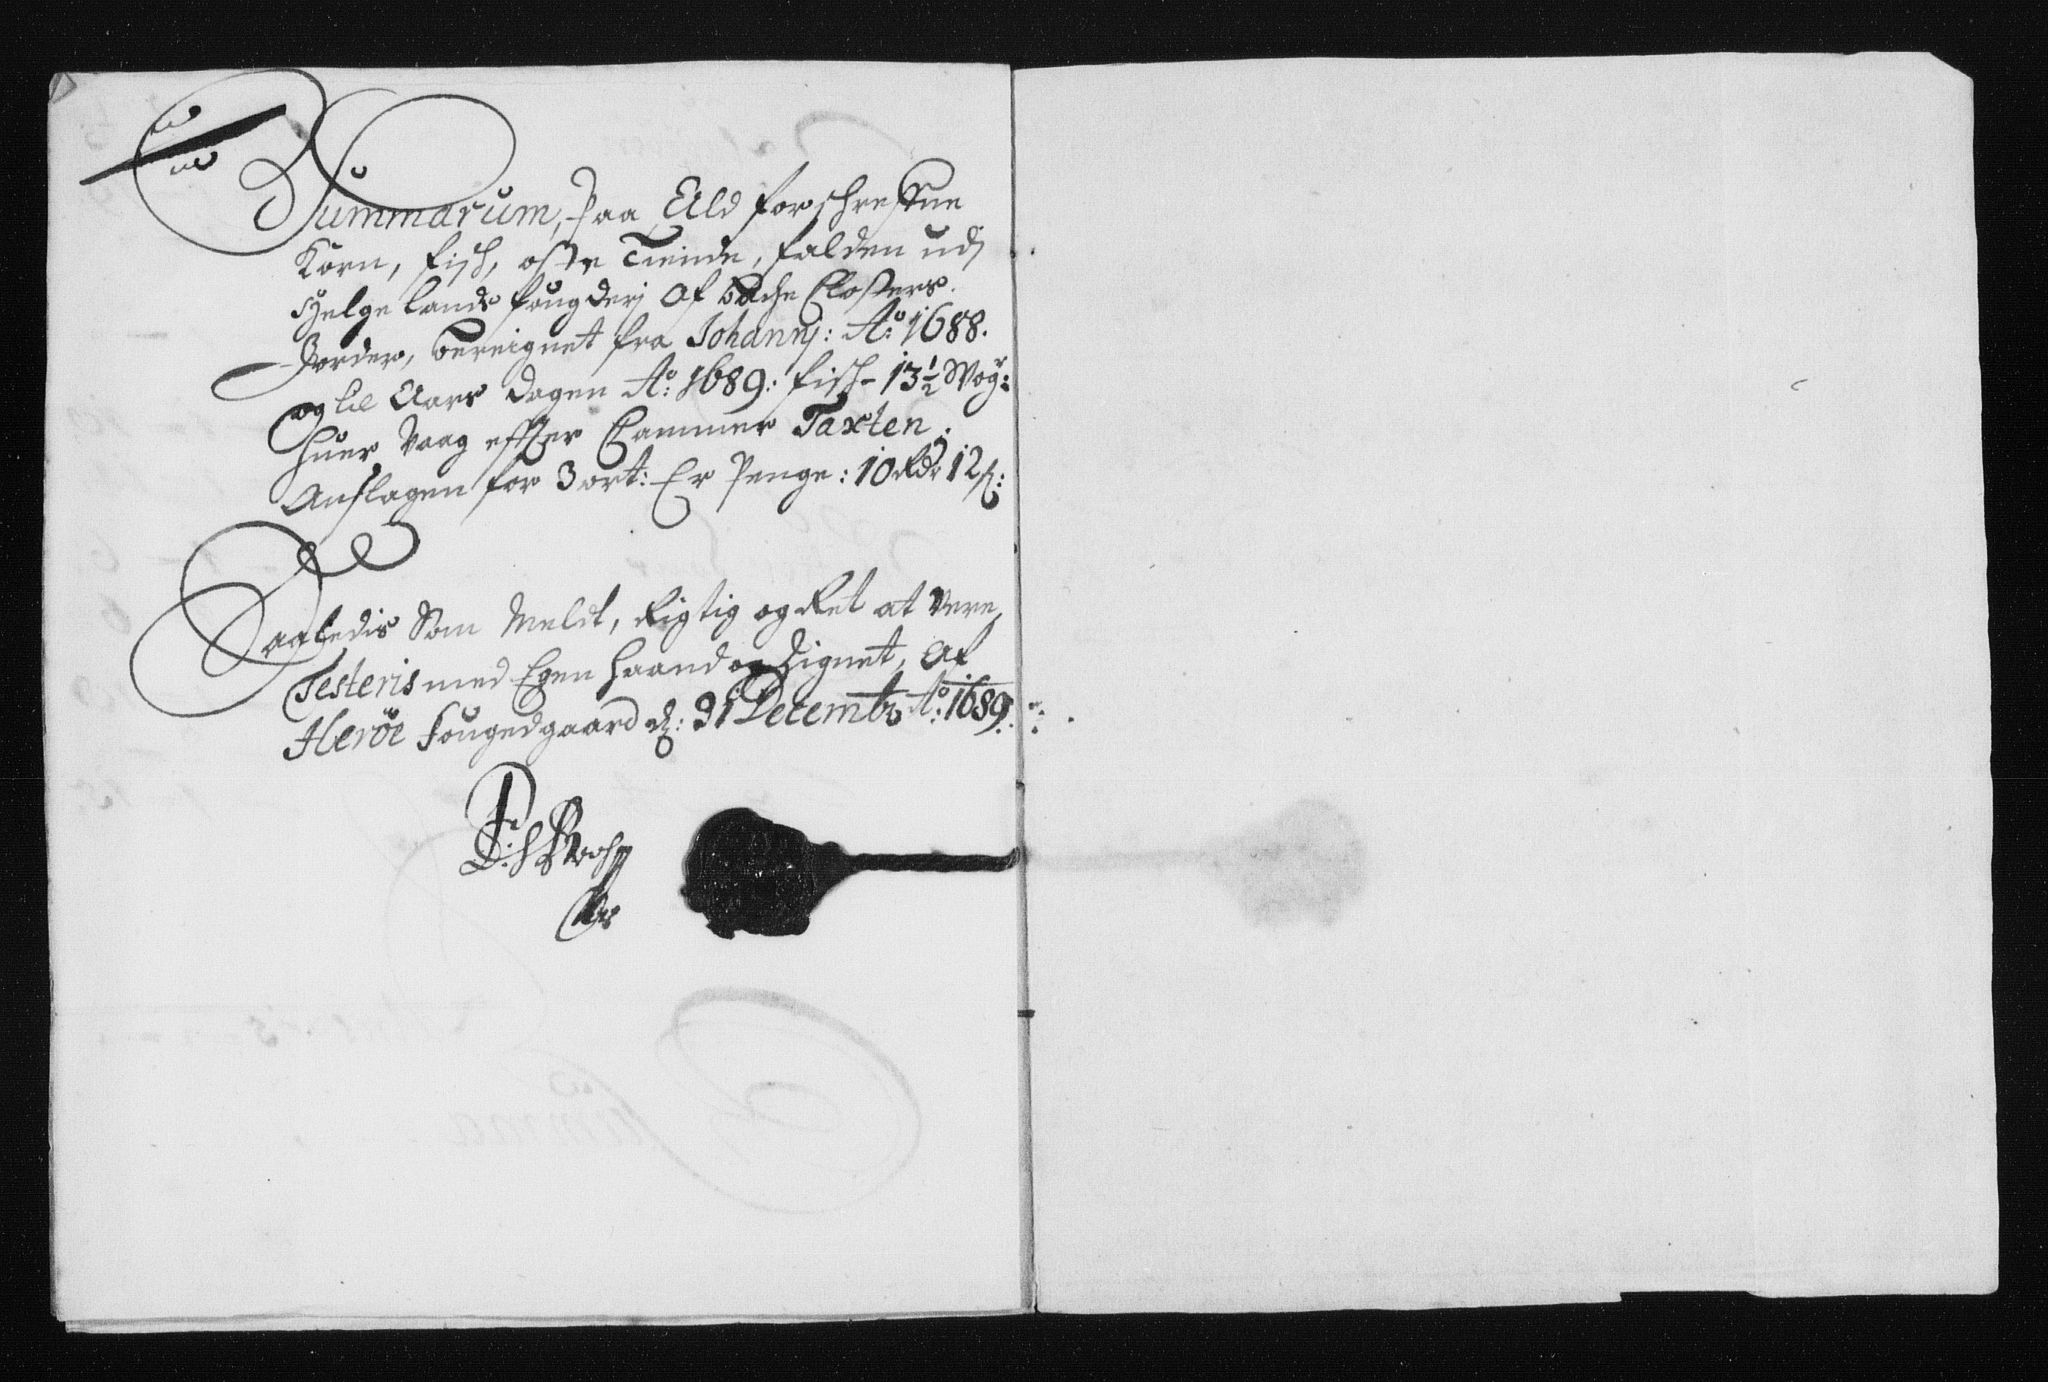 Summarum, paa Ald forschrefne
Korn, fisch, oste Tiende, falden udj
Helgelands fougderj Af bache Closters
Jorder, bereignet fra Johannj: Ao: 1688.
og til Aars dagen Ao: 1689: fisch 13½ Wog:
huer Vaag effter Cammer Taxten
Anslagen for 3 ort: Er Penge: 10 Rdr 12 s:
Saaledis Som Meldt, Rigtig og Ret at Vere,
Testeris med Egen haand og Zignet, Af
Herøe fougedgaard d: 31 Decembr Ao: 1689.